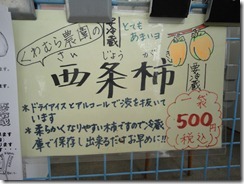 くわむら農園の
とても
あまいヨ
要冷蔵
さい じょう がき
西条柿
要冷蔵
*ドライアイスとアルコールで渋を抜いて
います
*柔らかくなりやすい柿ですので冷蔵
庫で保存し出来るだけお早めに!!
一袋
500円
(税込)